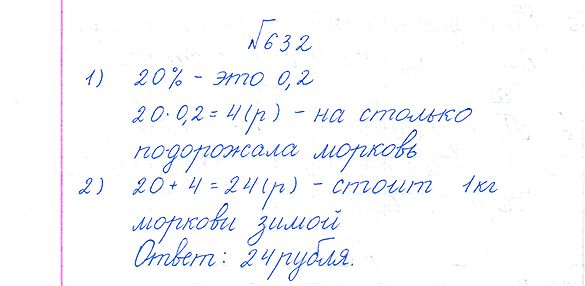 №632
1) 20% - это 0,2
20·0,2=4(р) - на столько
подорожала морковь
2) 20+4=24(р) - стоит 1кг
моркови зимой
Ответ: 24рубля.